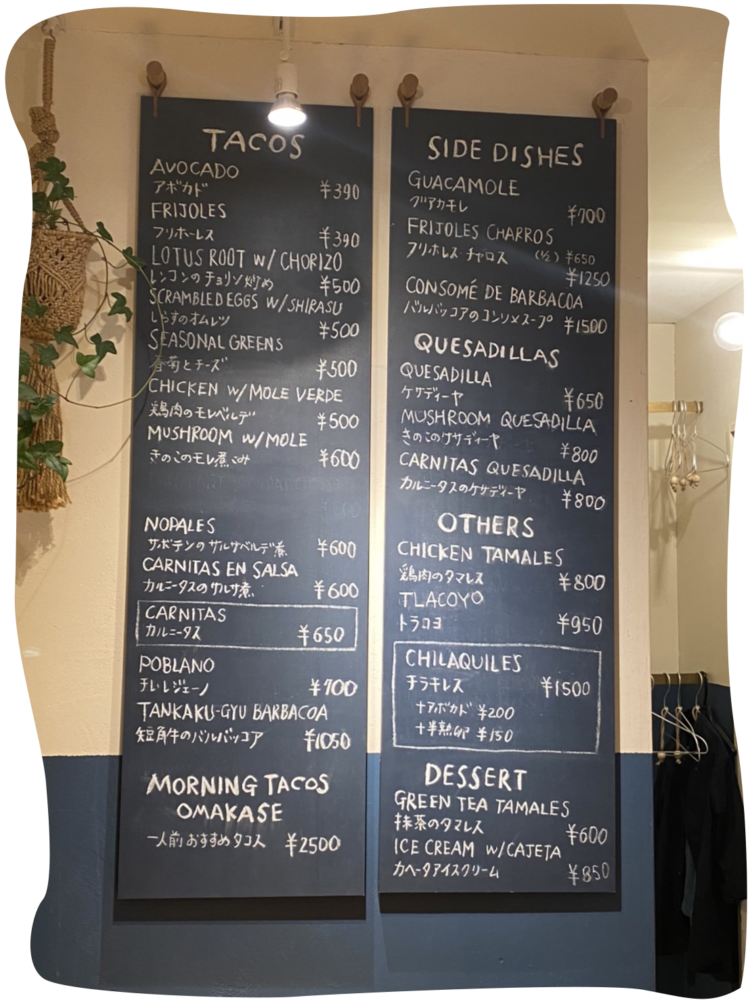 TACOS
AVOCADO
アボカド ¥390
FRIJOLES
フリホーレス ¥390
LOTUS ROOT W/ CHORIZO
レンコンのチョリソ炒め ¥500
SCRAMBLED EGGS W/SHIRASU
しらすのオムレツ ¥500
SEASONAL GREENS
春菊とチーズ ¥500
CHICKEN W/MOLE VERDE
鶏肉のモレベルデ ¥500
MUSHROOM W/MOLE
きのこのモレ煮こみ ¥600
NOPALES
サボテンのサルサベルデ煮 ¥600
CARNITAS EN SALSA
カルニータスのサルサ煮 ¥600
CARNITAS
カルニータス ¥650
POBLANO
チレ・レジェーノ ¥700
TANKAKU-GYU BARBACOA
短角牛のバルバッコア ¥1050
MORNING TACOS
OMAKASE
一人前 おすすめタコス ¥2500
SIDE DISHES
GUACAMOLE
グアカモレ ¥700
FRIJOLES CHARROS
フリホレス・チャロス (½) ¥650
¥1250
CONSOMÉ DE BARBACOA
バルバッコアのコンソメスープ ¥1500
QUESADILLAS
QUESADILLA
ケサディーヤ ¥650
MUSHROOM QUESADILLA
きのこのケサディーヤ ¥800
CARNITAS QUESADILLA
カルニータスのケサディーヤ ¥800
OTHERS
CHICKEN TAMALES
鶏肉のタマレス ¥800
TLACOYO
トラコヨ ¥950
CHILAQUILES
チラキレス ¥1500
+アボカド ¥200
+半熟卵 ¥150
DESSERT
GREEN TEA TAMALES
抹茶のタマレス ¥600
ICE CREAM W/CAJETA
カヘータアイスクリーム ¥850